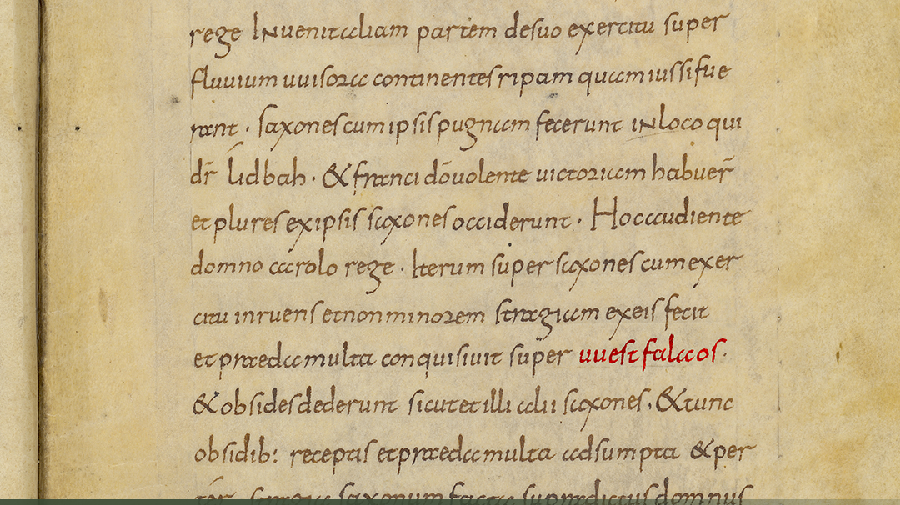 rege Inuenit aliam partem desuo exercitu super
fluuium uuisora continentes ripam quam iussi fue
rant . saxones cum ipsis pugnam fecerunt in loco qui
dr̄ lidbah . & franci dō uolente uictoriam habuer̄
et plures exipsis saxones occiderunt . Hoc audiente
domno carolo rege . Iterum super saxones cum exer
citu inruens et non minorem stragem exeis fecit
et praeda multa conquisiuit super uuestfalaos .
& obsides dederunt sicut et illi alii saxones . & tunc
obsidib: receptis et praeda multa adsumpta & per
ter stragia saxonum facta supradictus domnus